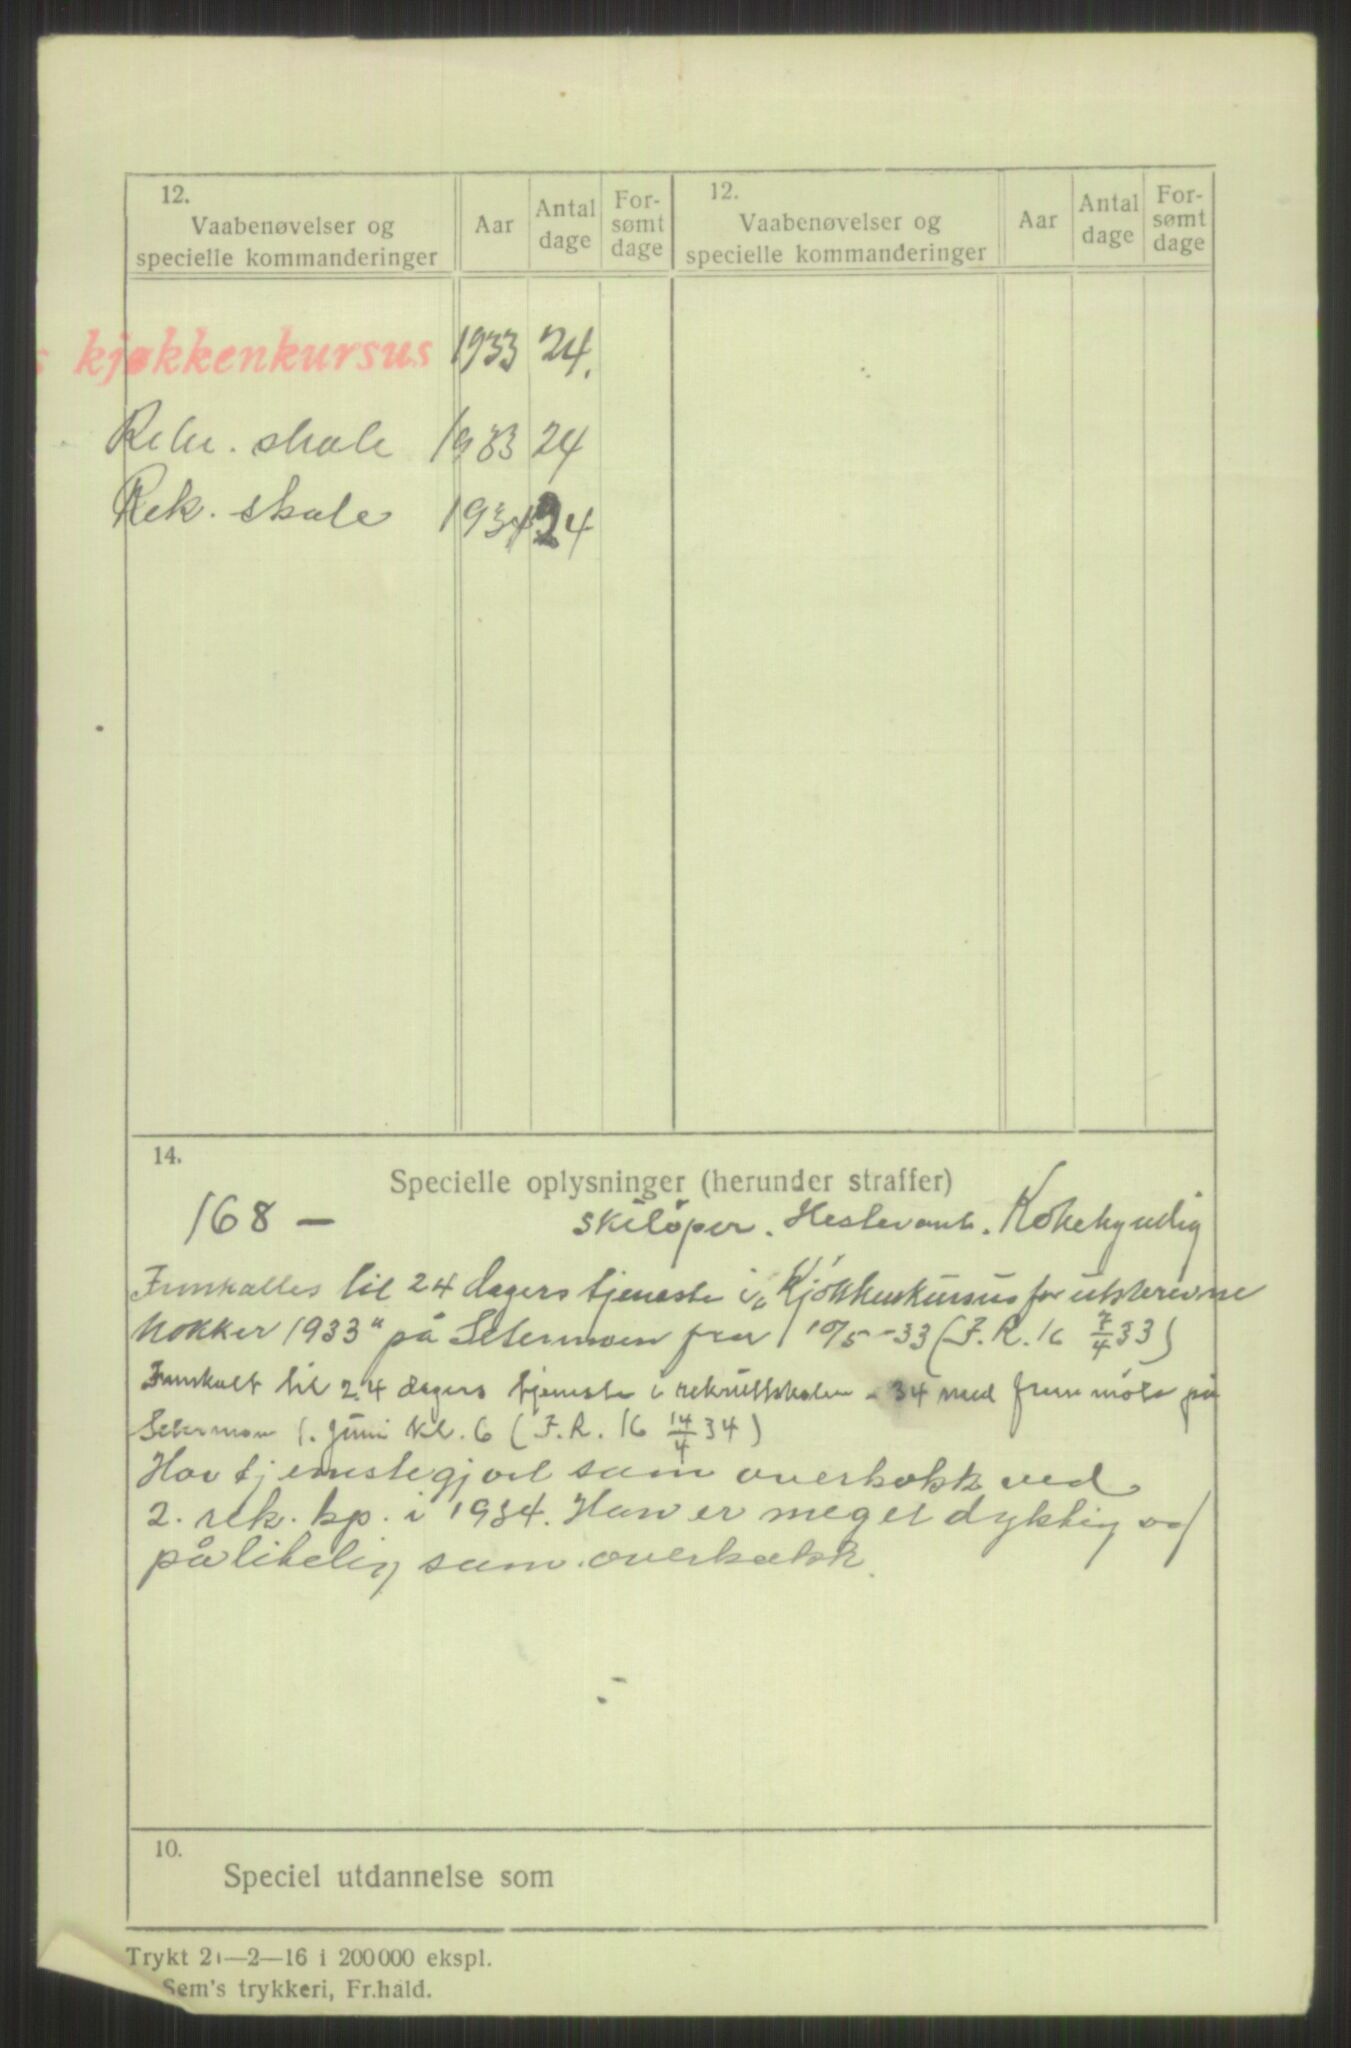 12.
Vaabenøvelser og
specielle kommanderinger
Aar
Antal
dage
For-
sømt
dage
12.
Vaabenøvelser og
specielle kommanderinger
Aar
Antal
dage
For-
sømt
dage
s kjøkkenkursus 1933 24.
Rekr. skole 1933 24
Rek. skole 1934 24
14.
Specielle oplysninger (herunder straffer)
168 — skiløper. Hestevant. Kokekyndig
Innkalles til 24 dagers tjeneste i „Kjøkkenkursus for utskrevne
kokker 1933" på Setermoen fra 10/5-33 (F.R. 16 7/4 33)
Innkalt til 24 dagers tjeneste i rekruttskolen - 34 med fremmøte på
Setermoen 1. juni kl. 6 (F.R. 16 14/4 34)
Har tjenestegjort som overkokk ved
2. rek. kp. i 1934. Han er meget dyktig og
pålitelig som overkokk.
10.
Speciel utdannelse som
Trykt 21—2—16 i 200000 ekspl.
Sem's trykkeri, Fr.hald.